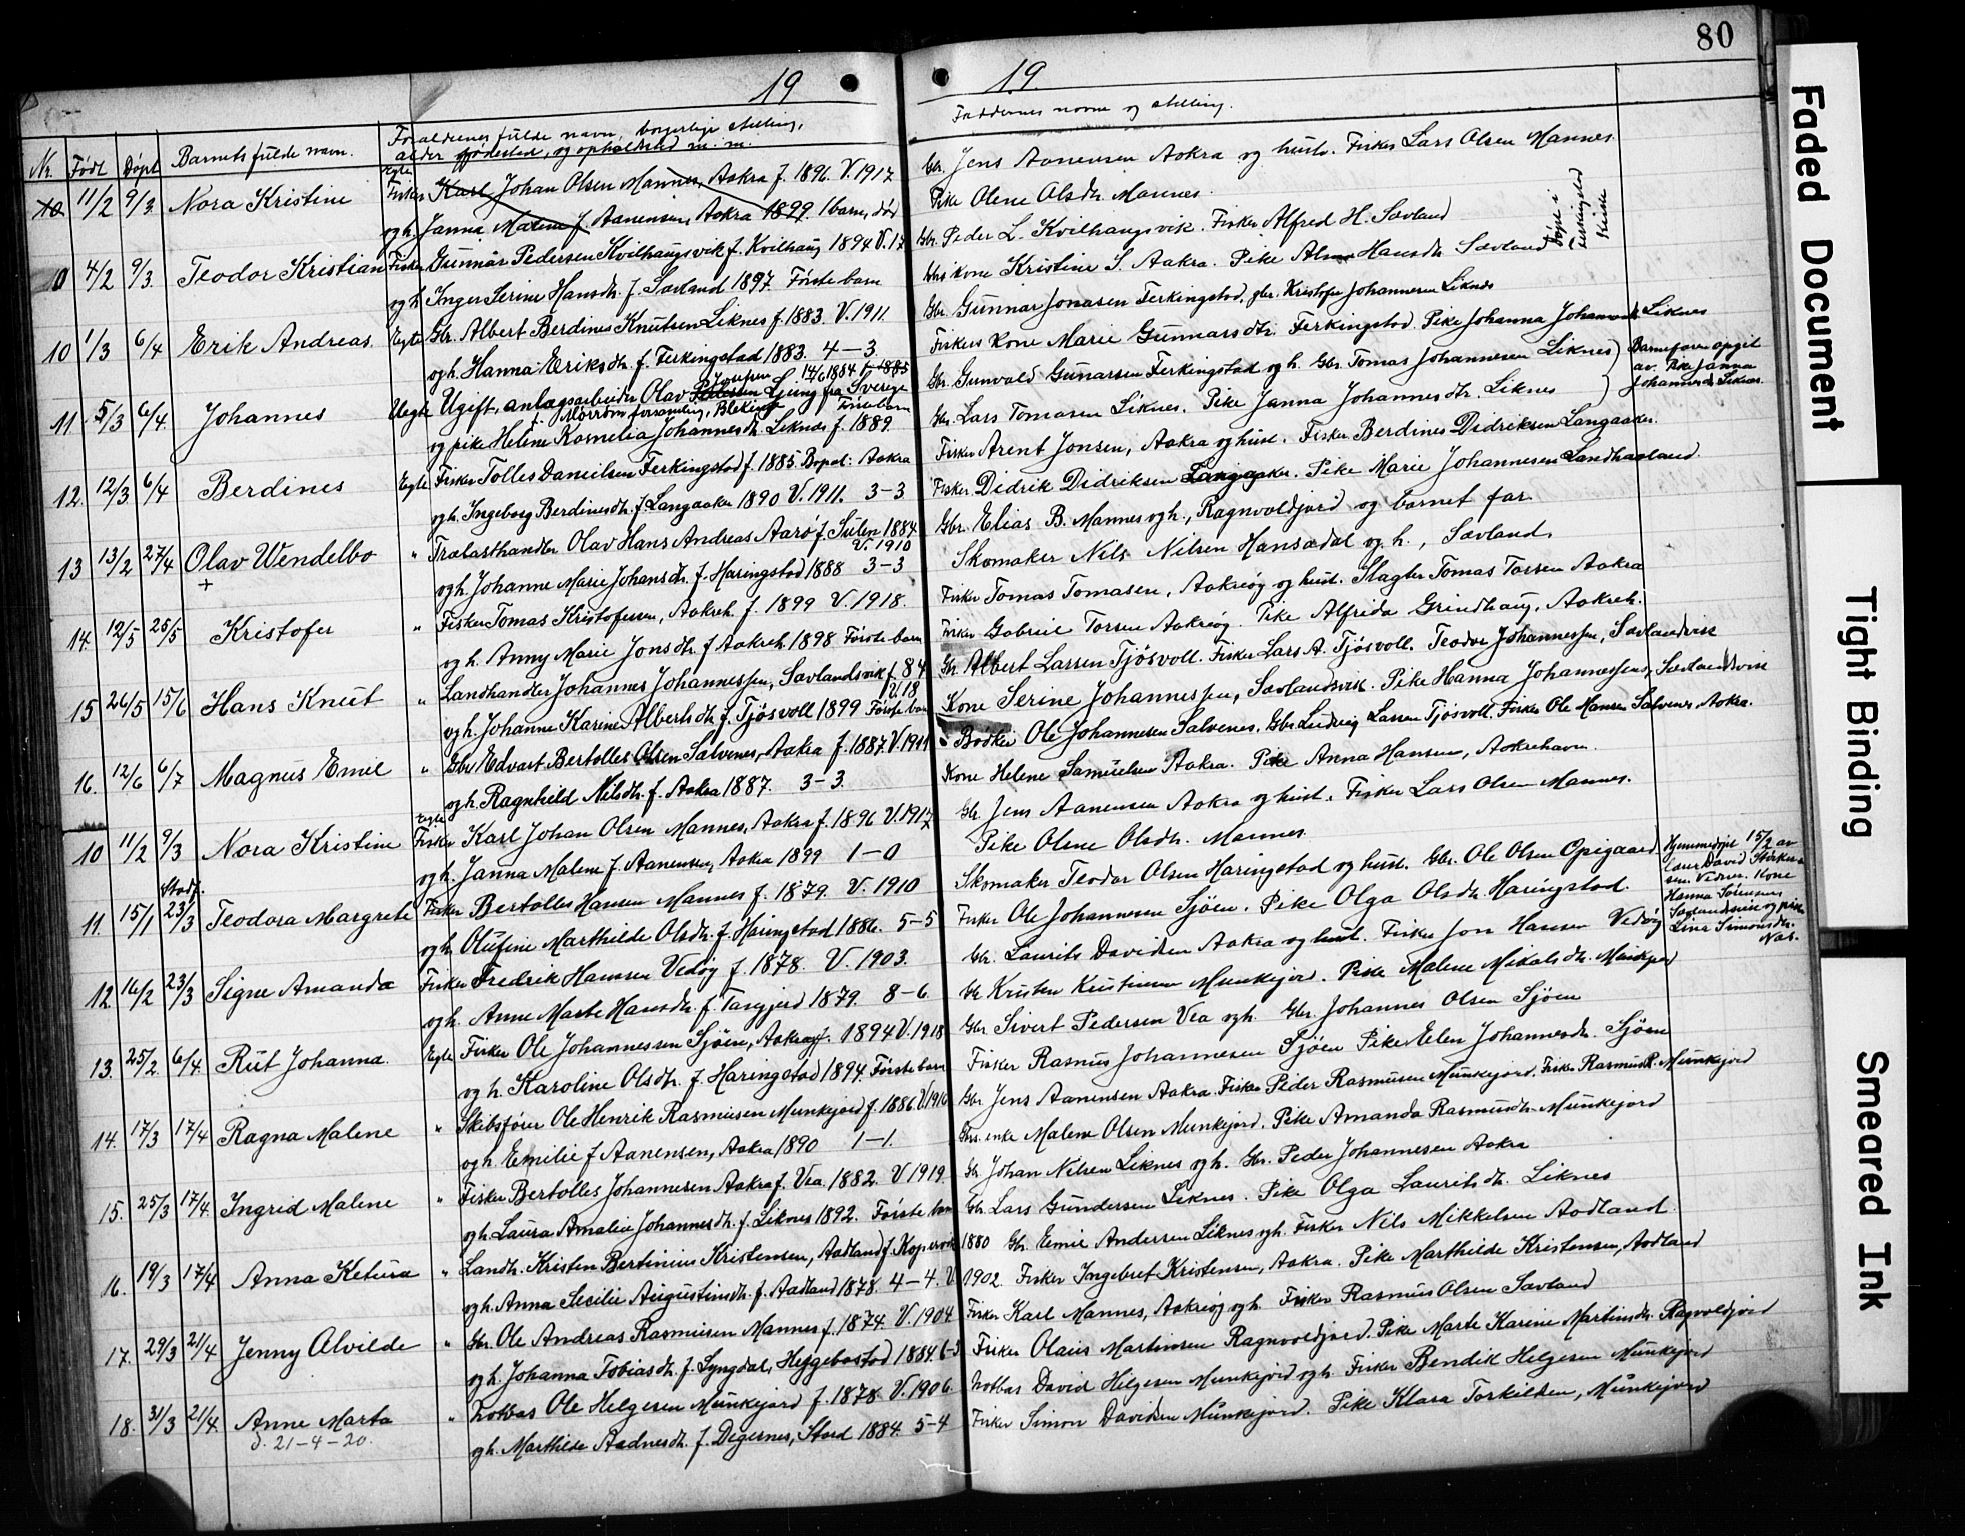 80
19
19.
Nr. Født Døpt Barnets fulde navn. Forældrenes fulde navn, borgerlige stilling, alder fødested, og opholdssted m. m.
Faddernes navne og stilling.
10 11/2 9/3 Nora Kristine Egte Fisker Karl Johan Olsen Mannes, Aakra f. 1896. V. 1917 Gbr. Jens Aanensen Aakra og hust. Fisker Lars Olsen Mannes.
og h. Janna Malene f. Aanensen, Aakra 1899 1 barn, død Pike Olene Olsdtr. Mannes.
4/2 9/3. Teodor Kristian Fisker Gunnar Pedersen Kvilhaugsvik f. Kvilhaug 1894 V. 17 Gbr. Peder L. Kvilhaugsvik. Fisker Alfred H. Sævland Døpt i Ferkingstad kirke
og h. Inger Serine Hansdtr. f. Sævland 1897 Første barn kone Kristine S. Aakra. Pike Hansdtr. Sævland
10 1/3 6/4 Erik Andreas. Egte Gbr. Albert Berdines Knutsen Liknes f. 1883. V. 1911 Gbr. Gunnar Jonasen Ferkingstad, gbr. Kristofer Johannesen Liknes
og h. Hanna Eriksdtr. f. Ferkingstad 1883. 4-3 Fiskers kone Marie Gunnarsdtr. Ferkingstad. Pike Johanna Liknes
11. 5/3 6/4. Johannes Uegte Ugift, anlægsarbeider Olav Josefsen Ljung fra Sverige 14/6 1884 Gbr. Gunvald Gunarsen Ferkingstad og h. Gbr. Tomas Johannesen Liknes Barnefaren opgit
f. Mörrum forsamling, Blekinge Første barn av. Pike Janna
og pike Helene Kornelia Johannesdtr. Liknes f. 1889. Gbr. Lars Tomasen Liknes. Pike Janna Johannesdtr. Liknes Johannesdtr. Liknes.
12. 12/3 6/4 Berdines Egte Fisker Tolles Danielsen Ferkingstad f. 1885. Bopæl: Aakra Fisker Arent Jonsen, Aakra og hust. Fisker Berdines Didriksen Langaaker.
og h. Ingeborg Berdinesdtr. f. Langaaker 1890 V. 1911. 3-3 Fisker Didrik Didriksen Langaaker. Pike Marie Johannesen Sandhaaland.
13 13/2 27/4 Olav Wendelbo " Trælasthandler Olav Hans Andreas Aarø f. Sulen 1884 V. 1910 Gbr. Elias B. Mannes og h., Ragnvaldjord og barnet far.
+ og h. Johanne Marie Johansdtr. f. Haringstad 1888 3-3 Skomaker Nils Nilsen Hansadal og h., Sævland.
14. 12/5 25/5 Kristofer " Fisker Tomas Kristofersen, Aakreh. f. 1899 V. 1918. Fisker Tomas Tomasen, Aakreøg og hust. Slagter Tomas Torsen Aakra
og h. Anny Marie Jonsdtr. f. Aakreh. 1898 Første barn Fisker Gabriel Torsen Aakreøg. Pike Alfrida Grindhaug, Aakreh.
15 26/5 15/6 Hans Knut " Landhandler Johannes Johannessen, Sævlandsvik f. 84 V. 18 Gbr. Albert Larsen Tjøsvoll. Fisker Lars A. Tjøsvoll. Teodor Johannessen, Sævlandsvik
og h. Johanne Karine Albertsdtr. f. Tjøsvoll 1899 Første barn Kone Serine Johannessen, Sævlandsvik. Pike Hanna Johannessen, Sævlandsvik
16. 12/6 6/7 Magnus Emil " Gbr. Edvart Bertolles Olsen Salvenes, Aakra f. 1887. V. 1911 Bødker Ole Johannesen Salvenes. Gbr. Ludvig Larsen Tjøsvoll. Fisker Ole Hansen Salvenes Aakra.
og h. Ragnhild Nilsdtr. f. Aakra 1887. 3-3. Kone Helene Samuelsen Aakra. Pike Anna Hansen, Aakrehavn.
10 11/2 9/3 Nora Kristine Egte Fisker Karl Johan Olsen Mannes, Aakra f. 1896 V. 1917 Gbr. Jens Aanensen Aakra og hust. Fisker Lars Olsen Mannes.
og h. Janna Malene f. Aanensen, Aakra 1899 1-0 Pike Olene Olsdtr. Mannes.
11. 15/1 Stadf. 23/3 Teodora Margrete Fisker Bertolles Hansen Mannes f. 1879. V. 1910 Skomaker Teodor Olsen Haringstad og hust. Gbr. Ole Olsen Opigaard. Hjemmedøpt 15/2 av
og h. Olufine Marthilde Olsdtr. f. Haringstad 1886. 5-5 Fisker Ole Johannesen Sjøen. Pike Olga Olsdtr. Haringstad. Hanna Sørensen Sævlandsvik og pike Lina Simonsdtr. Nas.
12. 16/2 23/3 Signe Amanda Fisker Fredrik Hansen Vedøy f. 1878. V. 1903. Gbr. Laurits Davidsen Aakra og hust. Fisker Jon Hansen Vedøy
og h. Anne Marte Hansdtr. f. Tarajerd 1879. 8-6 Gbr. Kristen Kristensen Munkejor. Pike Malene Mikalsdtr. Munkejor
13. 25/2. 6/4. Rut Johanna Egte Fisker Ole Johannessen Sjøen, Aakra f. 1894 V. 1918 Gbr. Sivert Pedersen Vea og h. Gbr. Johannes Olsen Sjøen
og h. Karoline Olsdtr. f. Haringstad 1894. Første barn Fisker Rasmus Johannesen Sjøen Pike Elen Johannesdtr. Sjøen
14. 17/3 17/4 Ragna Malene " Skibsfører Ole Henrik Rasmusen Munkejord f. 1886. V. 1916 Gbr. Jens Aanensen Aakra. Fisker Peder Rasmusen Munkejord. Fisker Rasmus R. Munkejord
og h. Emilie f. Aanensen, Aakra 1890 1-1. Gbrs. enke Malene Olsen Munkejord. Pike Amanda Rasmusdtr. Munkejord
15. 25/3 17/4. Ingrid Malene " Fisker Bertolles Johannesen Aakra f. Vea 1882. V 1919. Gbr. Johan Nilsen Liknes og h. Gbr. Peder Johannesen Aakra
og h. Laura Amalie Johannesdtr. f. Liknes 1892. Første barn Gbr. Lars Gundersen Liknes. Pike Olga Lauritsdtr. Liknes
16. 19/3 17/4 Anna Ketura " Landh. Kristen Bertinius Kristensen, Aadland f. Kopervik 1880 Gbr. Emil Andersen Liknes og h. Fisker Nils Mikkelsen Aadland
og h. Anna Secilie Augustinsdtr. f. Aadland 1878. 4-4. V. 1902. Fisker Ingebret Kristensen, Aakra. Pike Marthilde Kristensen, Aadland
17. 29/3 21/4 Jenny Alvilde " Gbr. Ole Andreas Rasmusen Mannes f. 1874. V. 1904 Fisker Karl Mannes, Aakreøg og h. Fisker Rasmus Olsen Sævland
og h. Johanna Tobiasdtr. f. Lyngdal, Heggebostad 1884. 6-5 Fisker Olaus Martinsen Ragnvaldjord. Pike Marte Karine Martinsdtr. Ragnvaldjord
18. 31/3 21/4. Anne Marta " Notbas Ole Helgesen Munkejord f. 1878 V. 1906. Notbas David Helgesen Munkejord og h. Fisker Bendik Helgesen Munkejord
d. 21-4-20. og h. Marthilde Aadnesdtr. f. Degernes, Stord 1884. 5-4 Fisker Simon Davidsen Munkejord. Pike Klara Torkildsen, Munkejord
Faded Document
Tight Binding
Smeared Ink